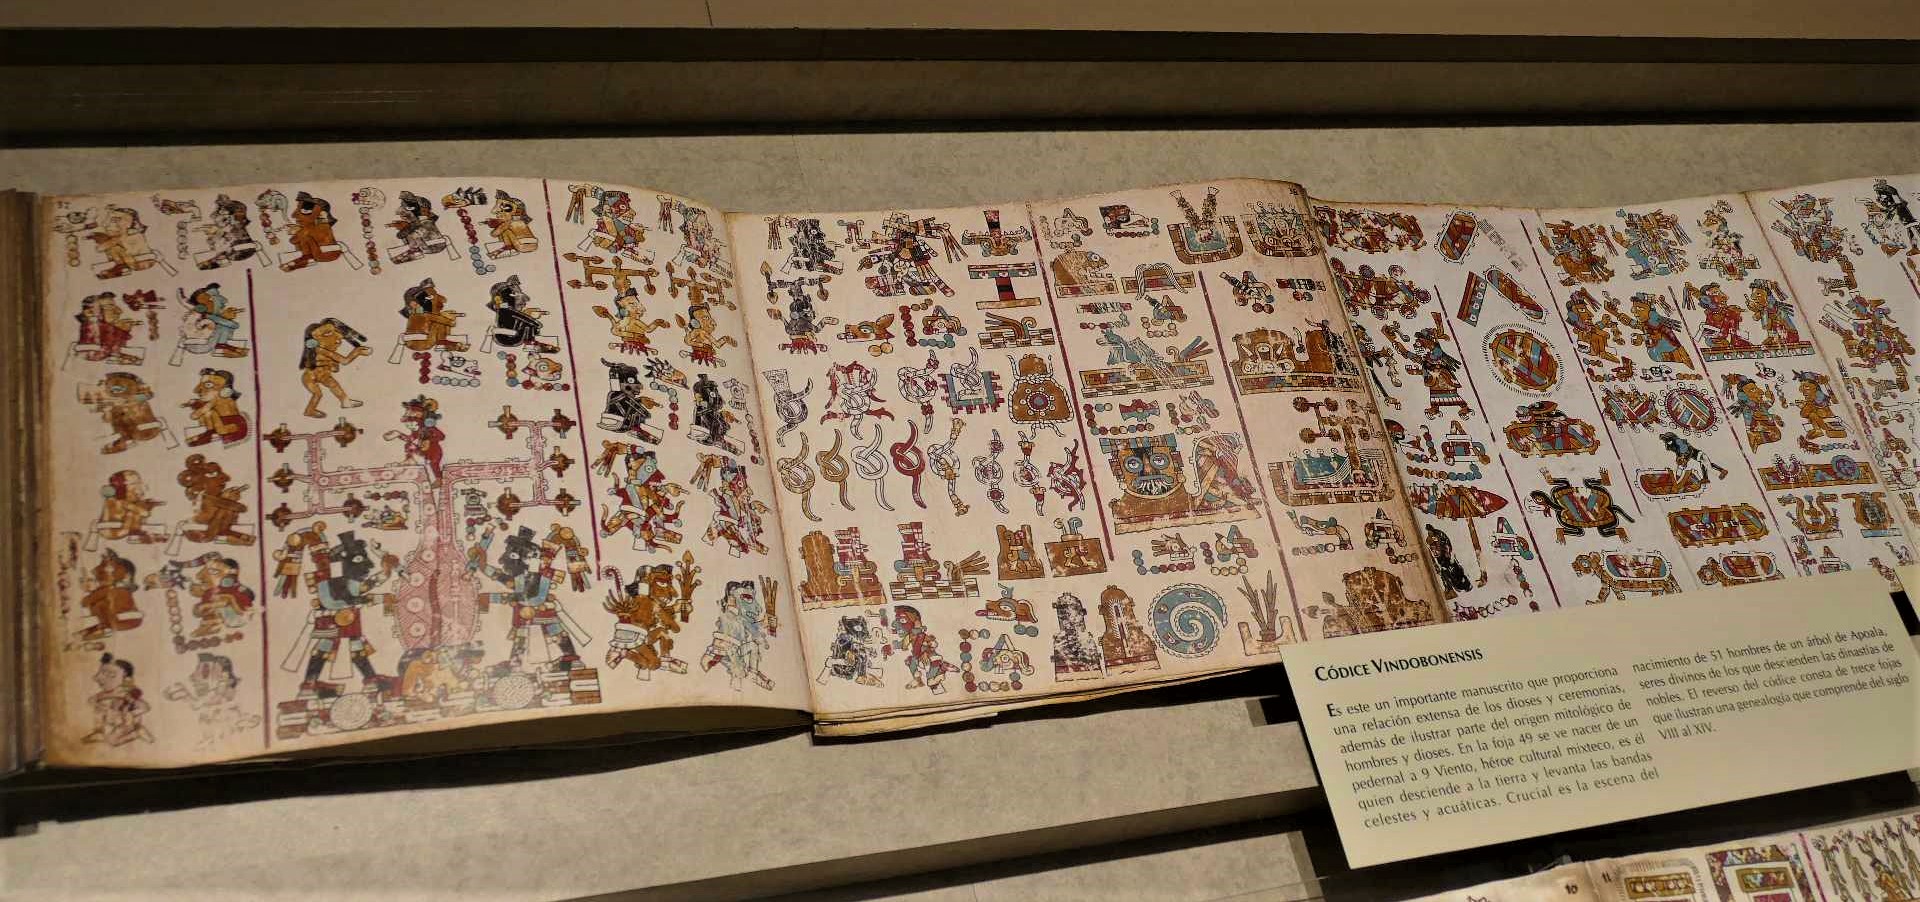 37
36
CÓDICE VINDOBONENSIS
Es este un importante manuscrito que proporciona
una relación extensa de los dioses y ceremonias,
además de ilustrar parte del origen mitológico de
hombres y dioses. En la foja 49 se ve nacer de un
pedernal a 9 Viento, héroe cultural mixteco, es él
quien desciende a la tierra y levanta las bandas
celestes y acuáticas. Crucial es la escena del
nacimiento de 51 hombres de un árbol de Apoala,
seres divinos de los que descienden las dinastías de
nobles. El reverso del códice consta de trece fojas
que ilustran una genealogía que comprende del siglo
VIII al XIV.
10
11